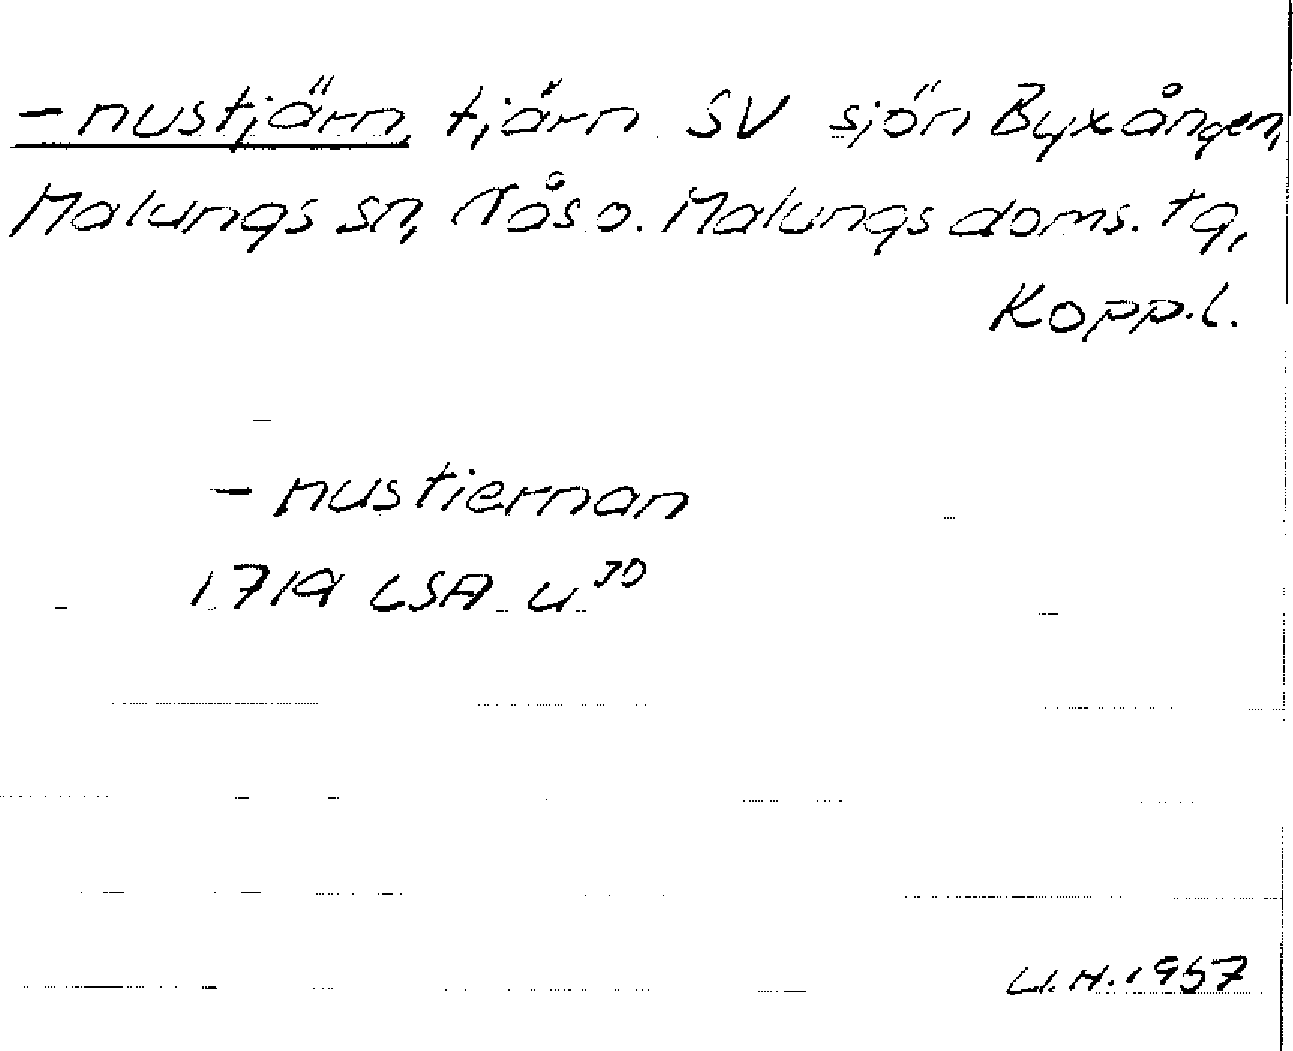 -nustjärn, tjärn SV sjön Byxången,
Malungs sn, Nås o. Malungs doms. tg,
Kopp.l.
-nustiernan
1719 LSA U³⁰
U.H. 1957